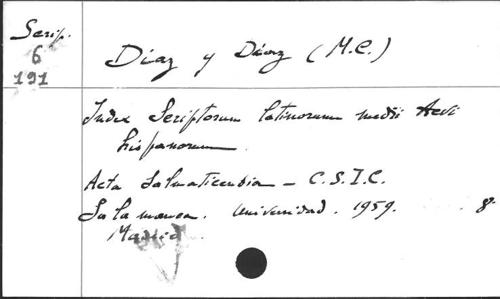 Scrip.
6
191
Díaz y Díaz (M.C.)
Index Scriptorum latinorum medii Aevi
hispanorum.
Acta Salmaticensia - C.S.I.C.
Salamanca. Universidad. 1959. 8º
Madrid.